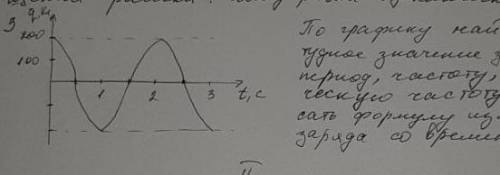 3 q,
200
100
1 2 3 t,c
По графику най
тудное значение з
период, частоту,
ческую частоту
сать формулу из
заряда со времен
II